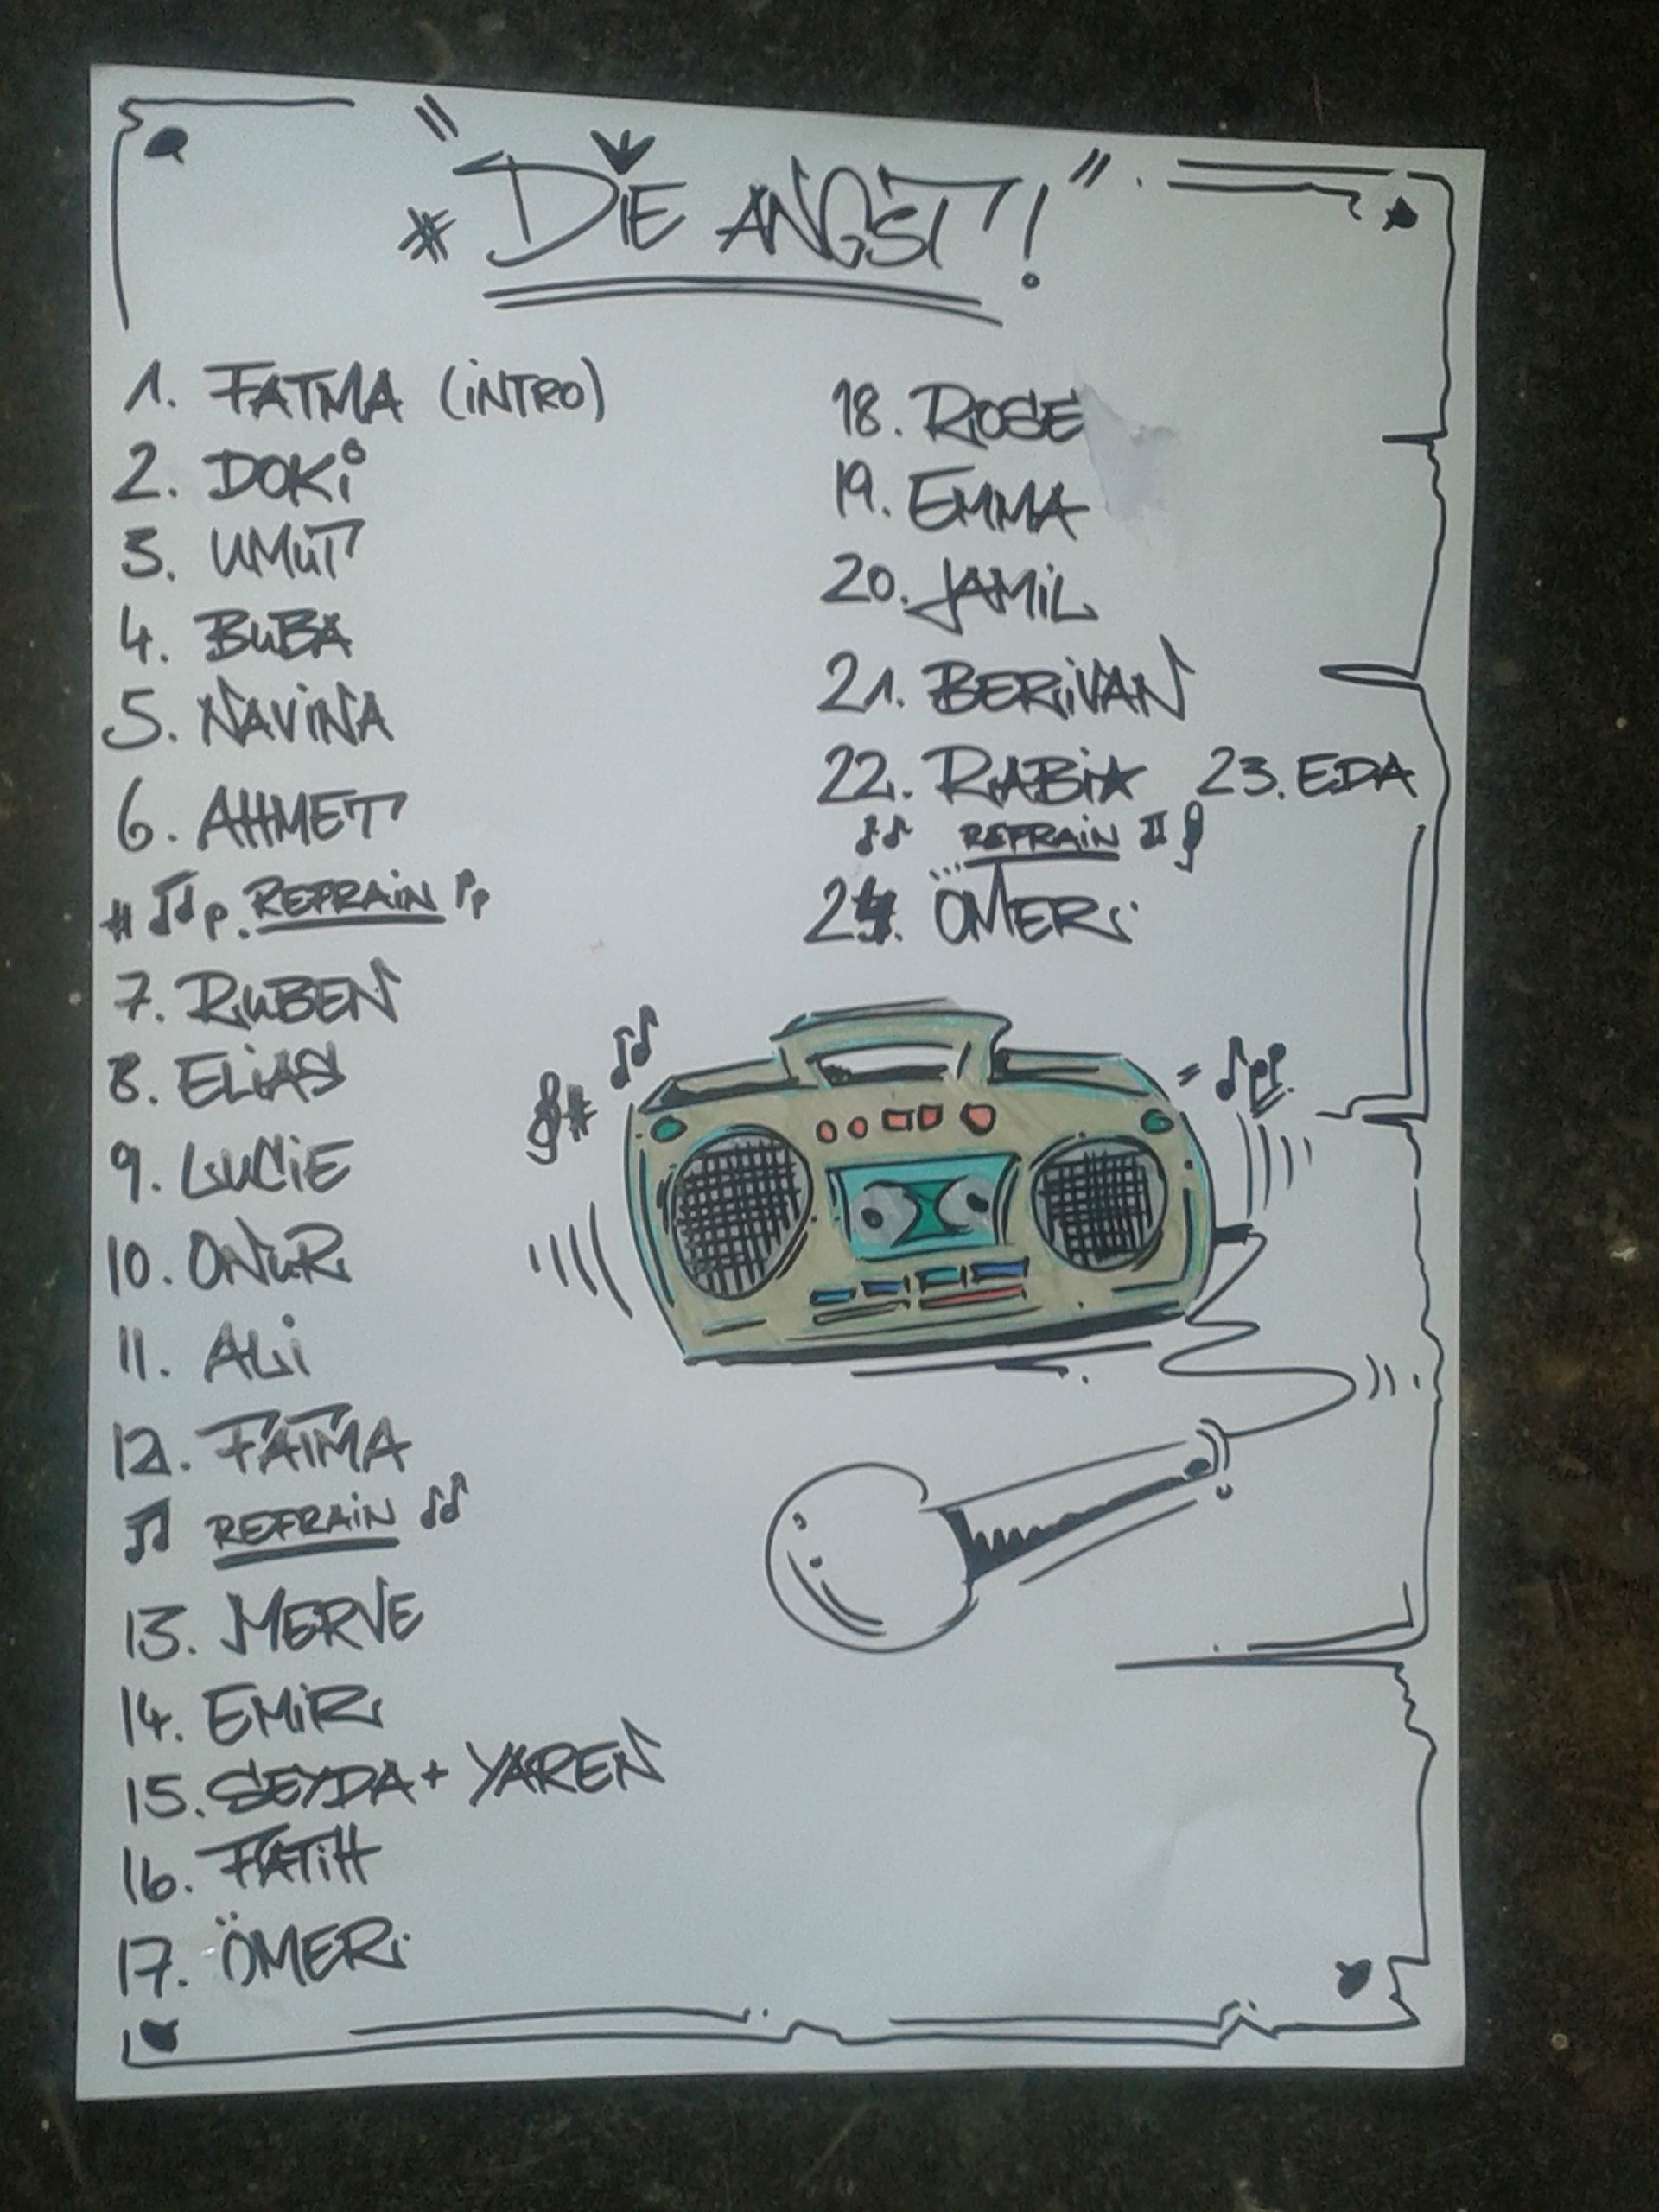 "DIE ANGST!"
1. FATMA (INTRO)
2. DOKI
3. UMUT
4. BUBA
5. NAVINA
6. AHMET
REFRAIN
7. RUBEN
8. ELIAS
9. LUCIE
10. ONUR
11. ALI
12. FATMA
REFRAIN
13. MERVE
14. EMIR
15. SEYDA + YAREN
16. FATIH
17. ÖMER
18. ROSE
19. EMMA
20. JAMIL
21. BERIVAN
22. RABIA 23. EDA
REFRAIN
24. ÖMER